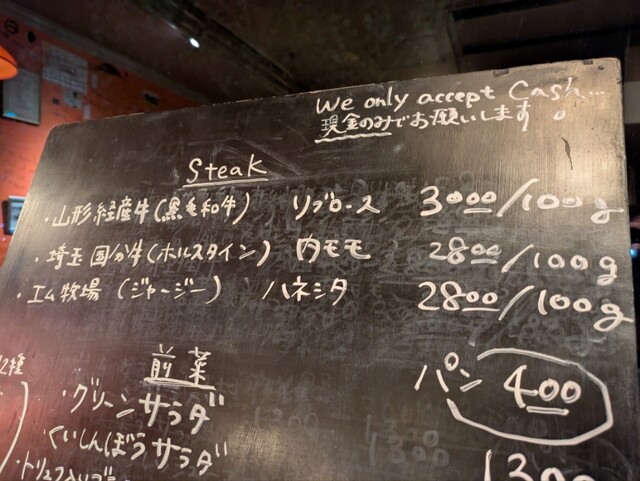 We only accept Cash...
現金のみでお願いします。
Steak
・山形 経産牛(黒毛和牛) リブロース 3000/100g
・埼玉 国分牛(ホルスタイン) 内モモ 2800/100g
・エム牧場 (ジャージー) ハネシタ 2800/100g
前菜
パン 400
・グリーンサラダ
・くいしんぼうサラダ
1300